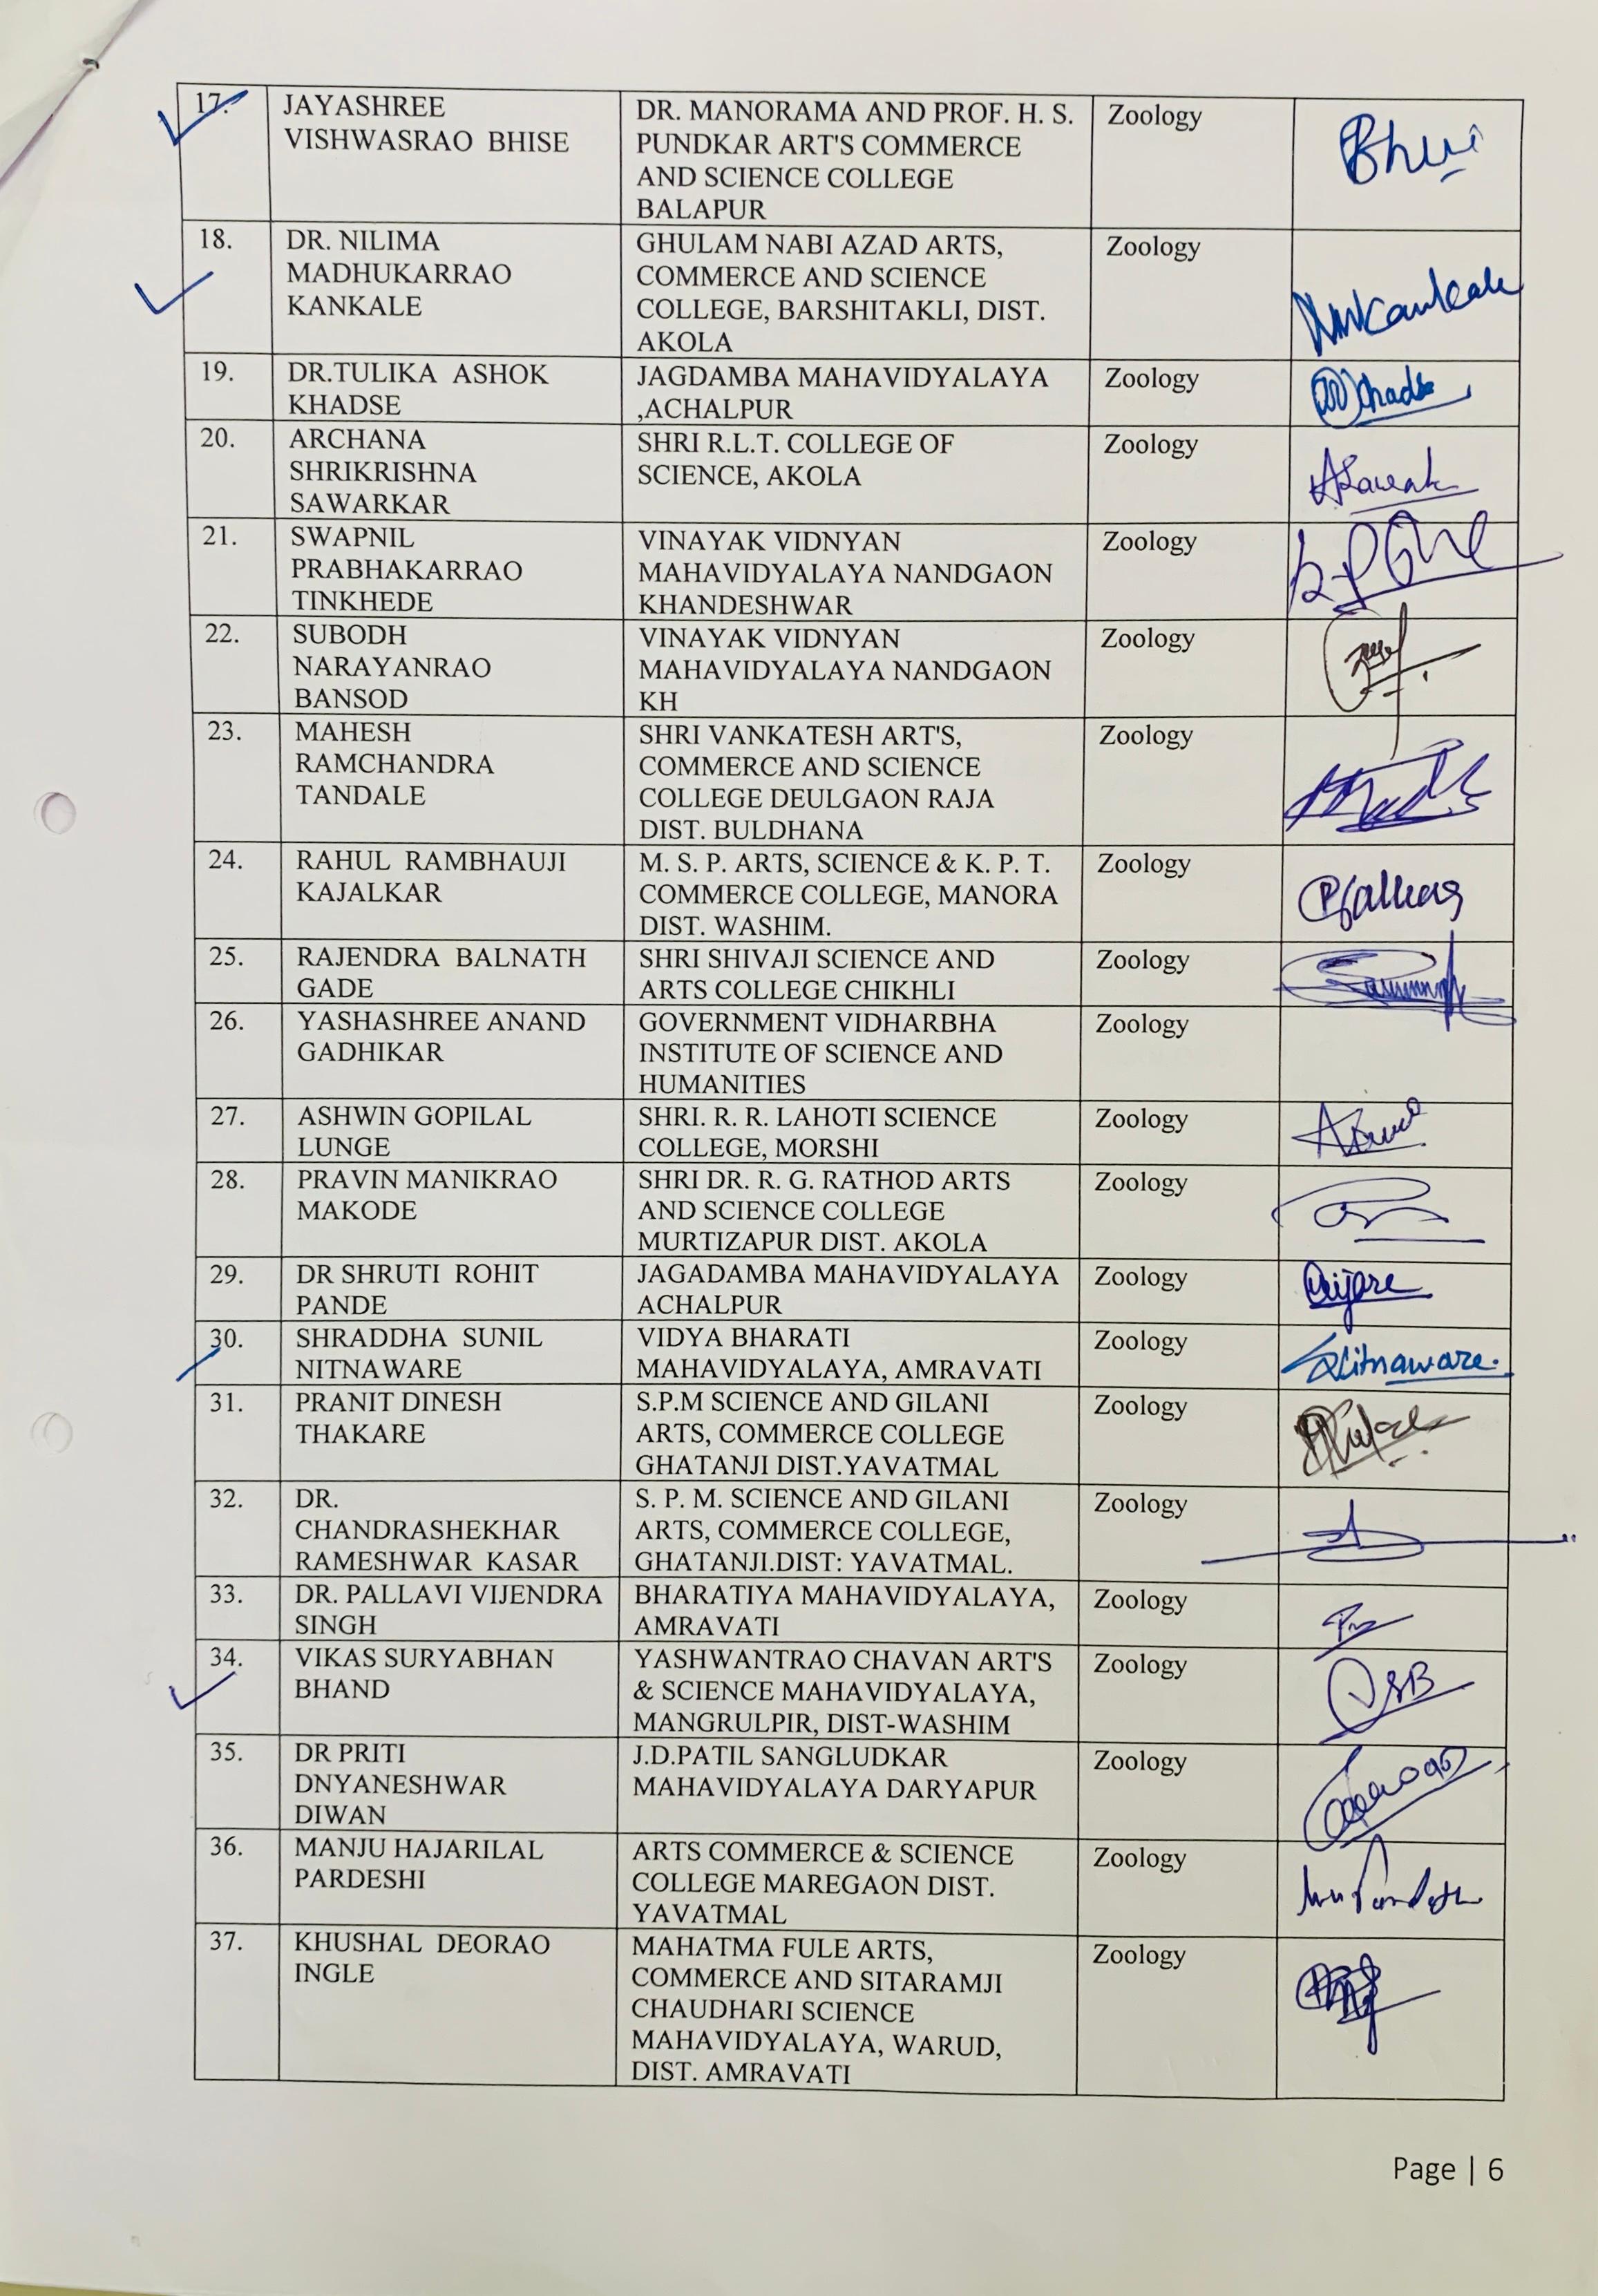 17. JAYASHREE DR. MANORAMA AND PROF. H. S. Zoology
VISHWASRAO BHISE PUNDKAR ART'S COMMERCE
AND SCIENCE COLLEGE
BALAPUR
18. DR. NILIMA GHULAM NABI AZAD ARTS, Zoology
MADHUKARRAO COMMERCE AND SCIENCE
KANKALE COLLEGE, BARSHITAKLI, DIST.
AKOLA
19. DR.TULIKA ASHOK JAGDAMBA MAHAVIDYALAYA Zoology
KHADSE ,ACHALPUR
20. ARCHANA SHRI R.L.T. COLLEGE OF Zoology
SHRIKRISHNA SCIENCE, AKOLA
SAWARKAR
21. SWAPNIL VINAYAK VIDNYAN Zoology
PRABHAKARRAO MAHAVIDYALAYA NANDGAON
TINKHEDE KHANDESHWAR
22. SUBODH VINAYAK VIDNYAN Zoology
NARAYANRAO MAHAVIDYALAYA NANDGAON
BANSOD KH
23. MAHESH SHRI VANKATESH ART'S, Zoology
RAMCHANDRA COMMERCE AND SCIENCE
TANDALE COLLEGE DEULGAON RAJA
DIST. BULDHANA
24. RAHUL RAMBHAUJI M. S. P. ARTS, SCIENCE & K. P. T. Zoology
KAJALKAR COMMERCE COLLEGE, MANORA
DIST. WASHIM.
25. RAJENDRA BALNATH SHRI SHIVAJI SCIENCE AND Zoology
GADE ARTS COLLEGE CHIKHLI
26. YASHASHREE ANAND GOVERNMENT VIDHARBHA Zoology
GADHIKAR INSTITUTE OF SCIENCE AND
HUMANITIES
27. ASHWIN GOPILAL SHRI. R. R. LAHOTI SCIENCE Zoology
LUNGE COLLEGE, MORSHI
28. PRAVIN MANIKRAO SHRI DR. R. G. RATHOD ARTS Zoology
MAKODE AND SCIENCE COLLEGE
MURTIZAPUR DIST. AKOLA
29. DR SHRUTI ROHIT JAGADAMBA MAHAVIDYALAYA Zoology
PANDE ACHALPUR
30. SHRADDHA SUNIL VIDYA BHARATI Zoology
NITNAWARE MAHAVIDYALAYA, AMRAVATI
31. PRANIT DINESH S.P.M SCIENCE AND GILANI Zoology
THAKARE ARTS, COMMERCE COLLEGE
GHATANJI DIST.YAVATMAL
32. DR. S. P. M. SCIENCE AND GILANI Zoology
CHANDRASHEKHAR ARTS, COMMERCE COLLEGE,
RAMESHWAR KASAR GHATANJI.DIST: YAVATMAL.
33. DR. PALLAVI VIJENDRA BHARATIYA MAHAVIDYALAYA, Zoology
SINGH AMRAVATI
34. VIKAS SURYABHAN YASHWANTRAO CHAVAN ART'S Zoology
BHAND & SCIENCE MAHAVIDYALAYA,
MANGRULPIR, DIST-WASHIM
35. DR PRITI J.D.PATIL SANGLUDKAR Zoology
DNYANESHWAR MAHAVIDYALAYA DARYAPUR
DIWAN
36. MANJU HAJARILAL ARTS COMMERCE & SCIENCE Zoology
PARDESHI COLLEGE MAREGAON DIST.
YAVATMAL
37. KHUSHAL DEORAO MAHATMA FULE ARTS, Zoology
INGLE COMMERCE AND SITARAMJI
CHAUDHARI SCIENCE
MAHAVIDYALAYA, WARUD,
DIST. AMRAVATI
Page | 6